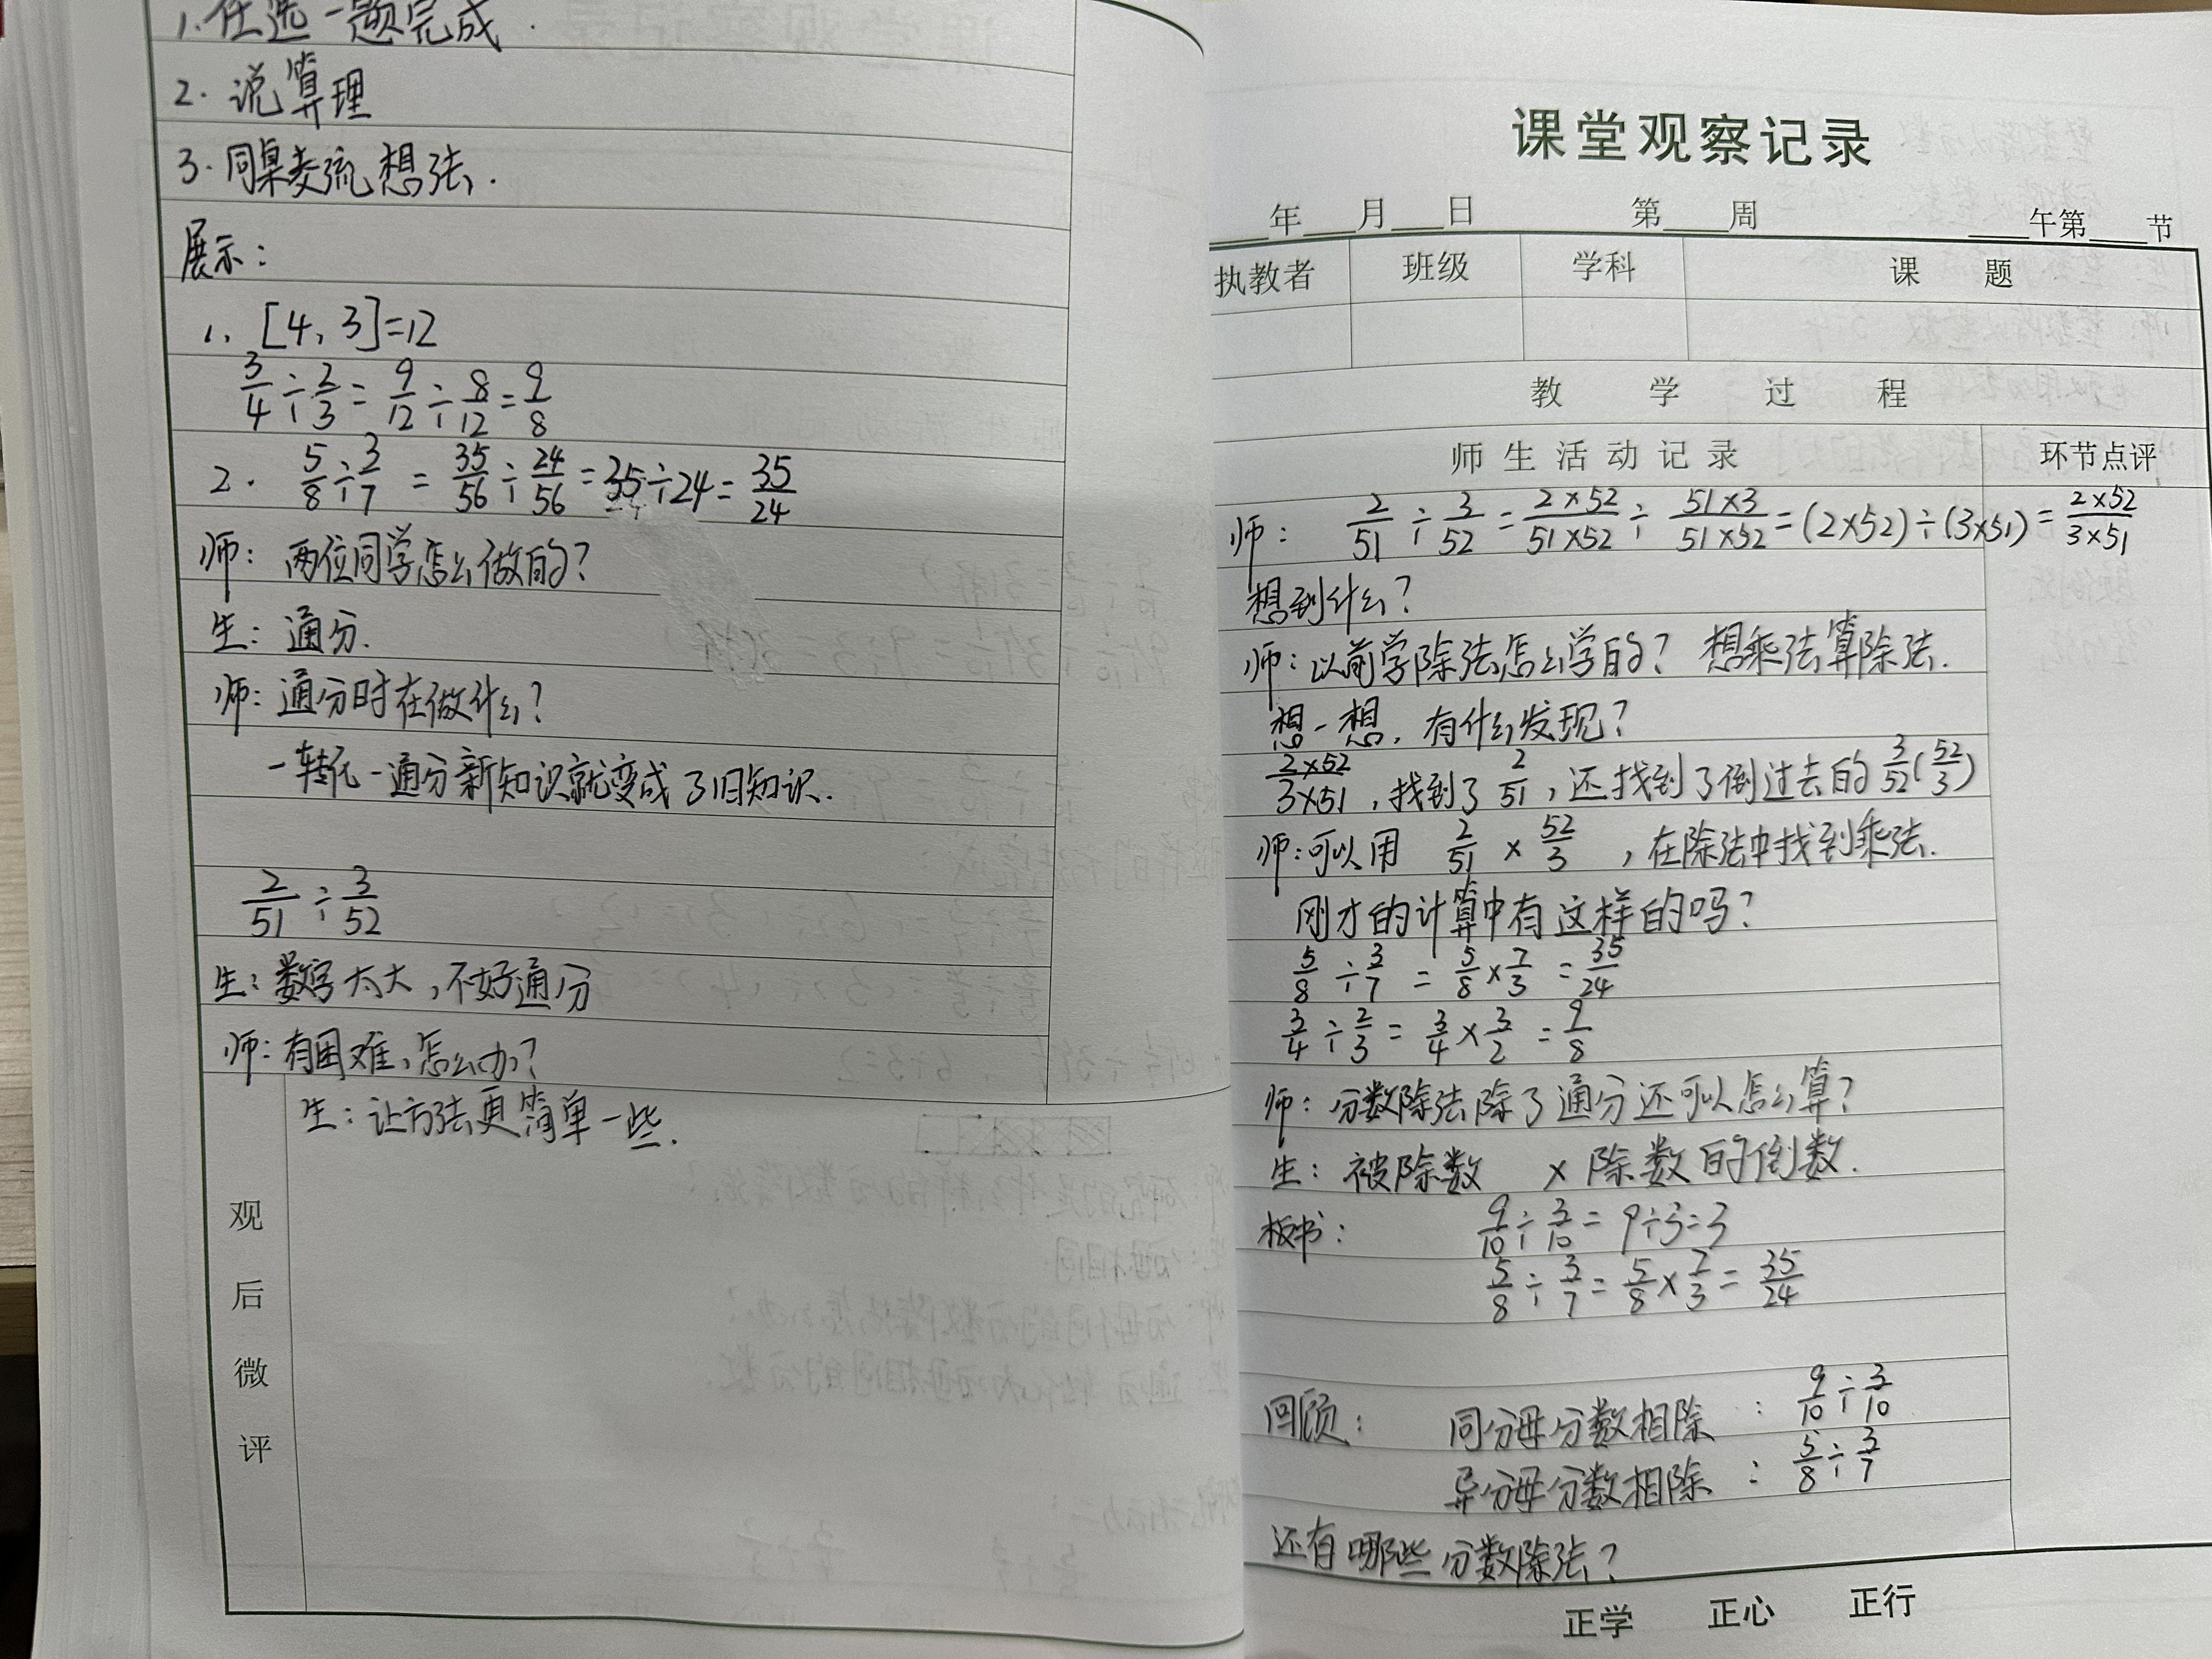 1.任选一题完成.
2. 说算理
3.同桌交流想法.
展示:
1. [4, 3]=12
3/4÷2/3=9/12÷8/12=9/8
2. 5/8÷3/7=35/56÷24/56=35÷24=35/24
师: 两位同学怎么做的?
生: 通分.
师: 通分时在做什么?
一转化一通分新知识就变成了旧知识.
2/51÷3/52
生: 数字太大,不好通分
师: 有困难,怎么办?
生: 让方法更简单一些.
观
后
微
评
课堂观察记录
年 月 日 第 周 午第 节
执教者 班级 学科 课 题
教 学 过 程
师 生 活 动 记 录 环节点评
师: 2/51÷3/52=2×52/51×52÷51×3/51×52=(2×52)÷(3×51)=2×52/3×51
想到什么?
师: 以前学除法怎么学的? 想乘法算除法.
想一想, 有什么发现?
2×52/3×51, 找到了2/51, 还找到了倒过去的3/52(52/3)
师: 可以用 2/51×52/3, 在除法中找到乘法.
刚才的计算中有这样的吗?
5/8÷3/7=5/8×7/3=35/24
3/4÷2/3=3/4×3/2=9/8
师: 分数除法除了通分还可以怎么算?
生: 被除数 × 除数的倒数.
板书: 9/10÷3/10=9÷3=3
5/8÷3/7=5/8×7/3=35/24
回顾: 同分母分数相除: 9/10÷3/10
异分母分数相除: 5/8÷3/7
还有哪些分数除法?
正学 正心 正行